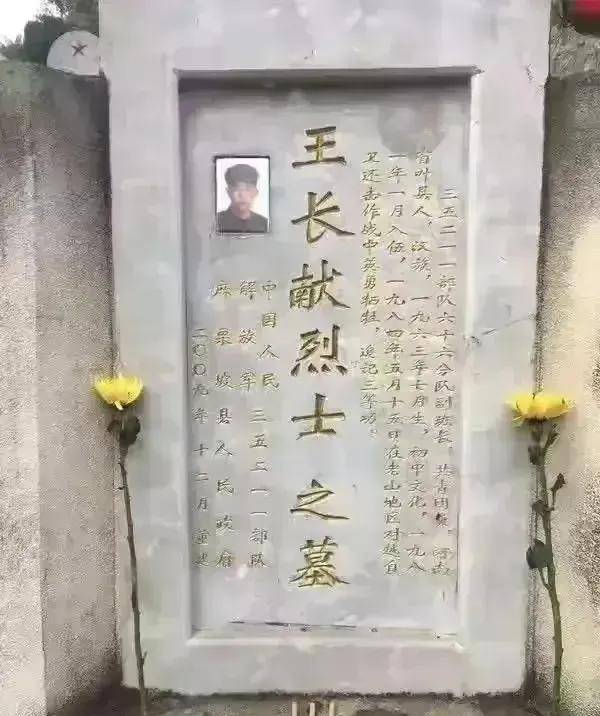 三五二一一部队六十六分队副班长，共青团员，河南
省叶县人，汉族，一九六三年七月生，初中文化，一九八
一年一月入伍，一九八四年五月十五日在老山地区对越自
卫还击作战中英勇牺牲，追记三等功。
王长献烈士之墓
中国人民
解放军 三五二一一部队
麻栗坡县人民政府
二〇〇九年十二月重建